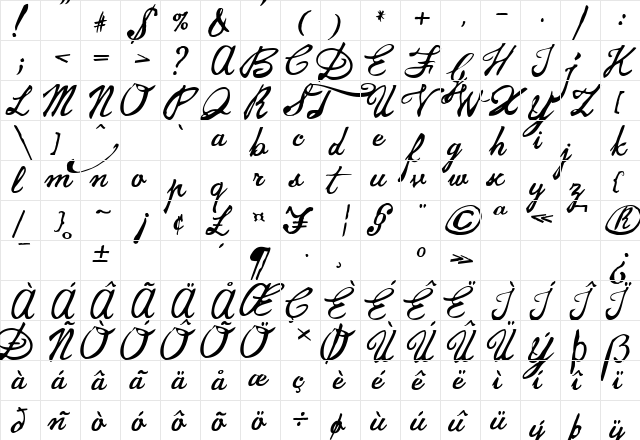 ! " # $ % & ' ( ) * + , - . / :
; < = > ? A B C D E F G H I J K
L M N O P Q R S T U V W X Y Z [
\ ] ^ ` a b c d e f g h i j k
l m n o p q r s t u v w x y z {
| } ~ ¡ ¢ £ ¤ ¥ ¦ § ¨ © ª « ®
¯ ° ± ´ ¶ · ¸ º » ¿
À Á Â Ã Ä Å Æ Ç È É Ê Ë Ì Í Î Ï
Ð Ñ Ò Ó Ô Õ Ö × Ø Ù Ú Û Ü Ý Þ ß
à á â ã ä å æ ç è é ê ë ì í î ï
ð ñ ò ó ô õ ö ÷ ø ù ú û ü ý þ ÿ